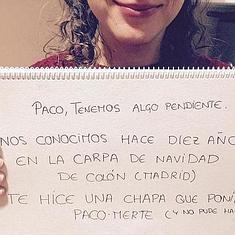 PACO, TENEMOS ALGO PENDIENTE.
NOS CONOCIMOS HACE DIEZ AÑO
EN LA CARPA DE NAVIDAD
DE COLÓN (MADRID)
TE HICE UNA CHAPA QUE PONÍ
PACO-MERTE (Y NO PUDE HA